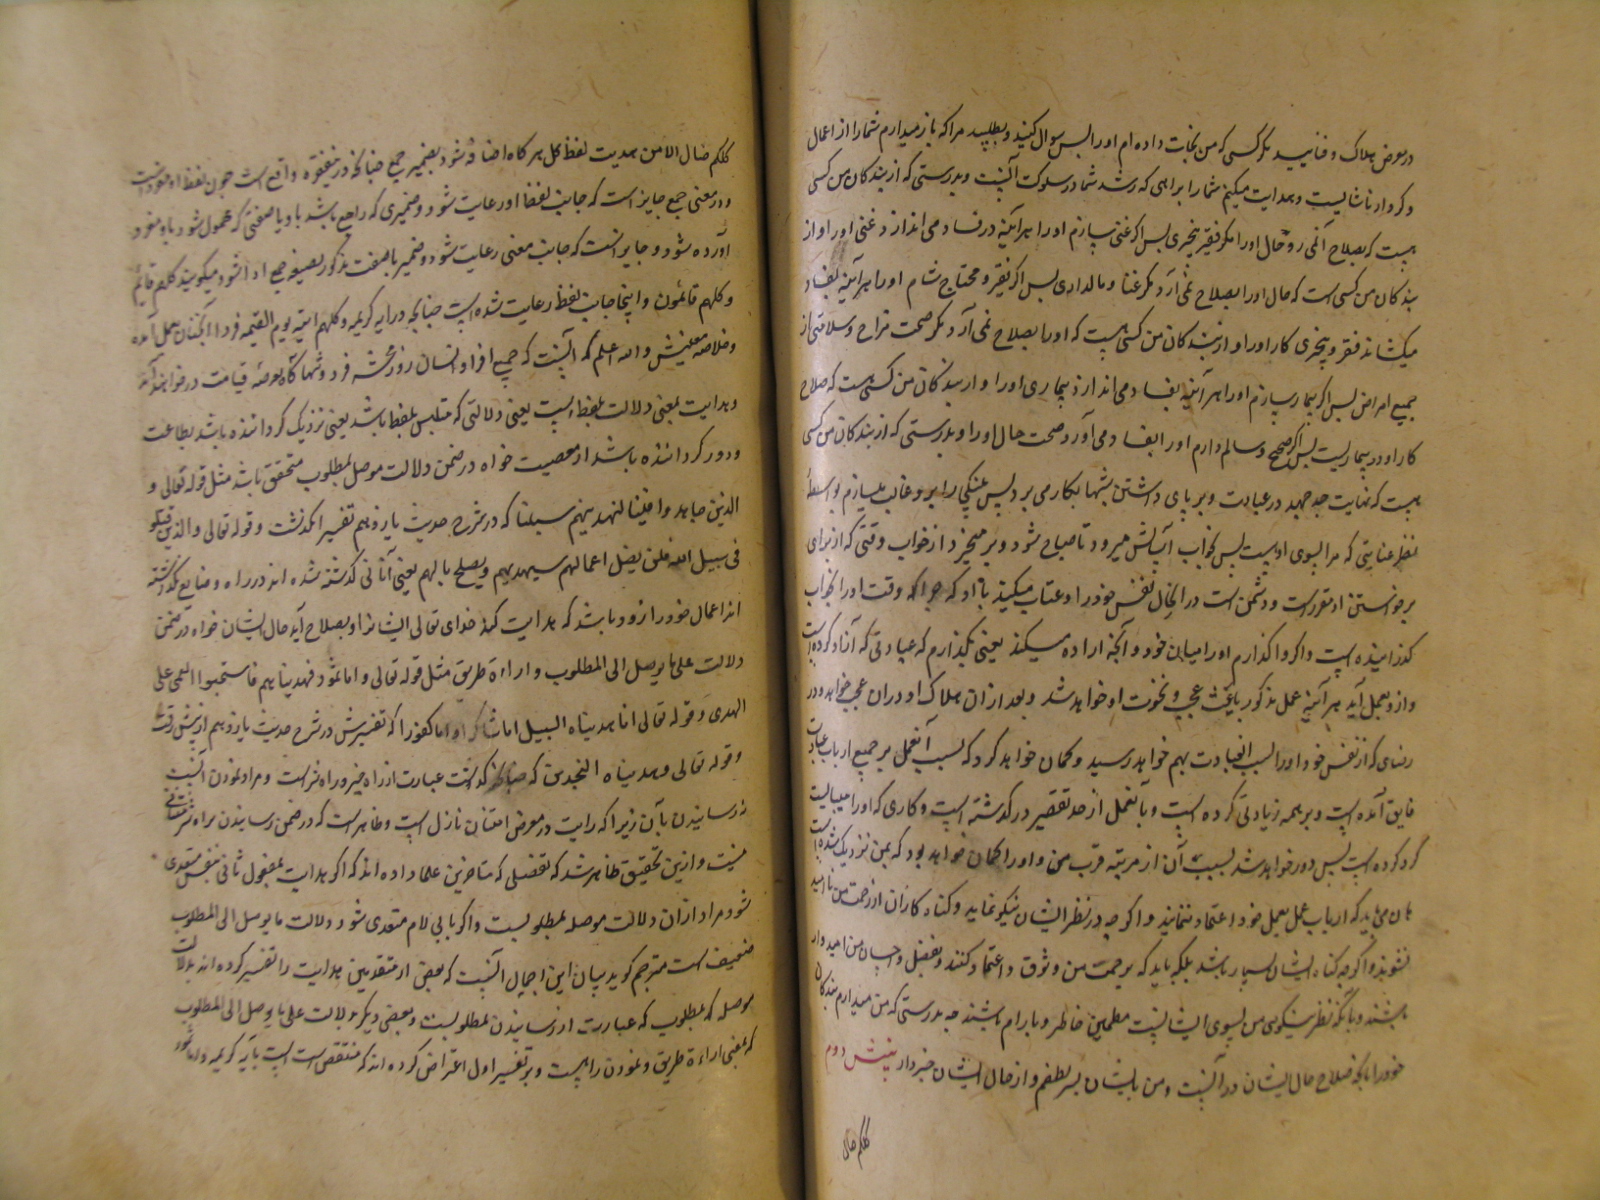 در معرض هلاک و فنائید مگر کسی که من نجات داده ام او را پس سوال کنید و بطلبید مرا که باز میدارم شما را از اعمال
و کردار ناشایست و هدایت میکنم شما را براهی که رشد شما در سلوک آنست و بدرستی که از بندگان من کسی
هست که بصلاح نمی آرد حال او را مگر فقر و بیچیزی پس اگر غنی سازم او را هر آینه در فساد می اندازد غنی او را و از
بندگان من کسی است که حال او را بصلاح نمی آرد مگر غنا و مالداری پس اگر فقیر و محتاج سازم او را هر آینه بفساد
میکشاند فقر و بیچیزی کار او را و از بندگان من کسی هست که او را بصلاح نمی آرد مگر صحت مزاج و سلامتی از
جمیع امراض پس اگر بیمار سازم او را هر آینه بفساد می اندازد بیماری او را و از بندگان من کسی هست که صلاح
کار او در بیماریست پس اگر صحیح و سالم دارم او را بفساد می آورد صحت حال او را و بدرستی که از بندگان من کسی
هست که نهایت جد و جهد در عبادت و بر پای داشتن شبها بکار می برد پس پینکی را برو غالب میسازم بواسطهٔ
نظر عنایتی که مرا بسوی اوست پس بخواب آسایش میرود تا صباح شود و بر میخیزد از خواب وقتی که از برای
برخواستن او مقررست و دشمن است در آنحال نفس خود را و عتاب میکند با او که چرا که وقت او را بخواب
گذرانیده است و اگر واگذارم او را میان خود و آنچه اراده میکند یعنی بگذارم که عبادتی که اراده کرده است
و ازو بعمل آید هر آینه عمل مذکور باعث عجب و نخوت او خواهد شد و بعد از آن هلاک او در آن عجب خواهد بود و در
رضای که از نفس خود او را بسبب آنعبادت بهم خواهد رسید و گمان خواهد کرد که بسبب آنعمل بر جمیع ارباب عبادت
فایق آمده است و بر همه زیادتی کرده است و بآنعمل از حد تقصیر در گذشته است و کاری که او را میبایست
کرد کرده است پس دور خواهد شد بسبب آن از مرتبه قرب من و او را گمان خواهد بود که بمن نزدیک شده است
هان می باید که ارباب عمل بعمل خود اعتماد ننمایند و اگر چه در نظر ایشان نیکو نماید و گناه کاران از رحمت من ناامید
نشوند و اگر چه گناه ایشان بسیار باشد بلکه باید که برحمت من وثوق و اعتماد کنند و بفضل و احسان من امیدوار
باشند و بآنکه نظر نیکوی من بسوی ایشانست مطمئن خاطر و با آرام باشند چه بدرستی که من میدارم بندگان
خود را بآنچه صلاح حال ایشان در آنست و من بایشان پر لطفم و از حال ایشان خبردار بینش دوم
کلکم ضال
کلکم ضال الا من هدیت لفظ کل هر گاه اضافه شود بضمیر جمع چنانچه درین فقره واقع است چون لفظ او مفردست
و در معنی جمع جایز است که جانب لفظ او رعایت شود و ضمیری که راجع باشد باو یا صفتی که محمول شود باو مفرد
آورده شود و جایز است که جانب معنی رعایت شود و ضمیر یا صفت مذکور بصیغه جمع ادا شود میگویند کلهم قائم
و کلهم قائمون و اینجا جانب لفظ رعایت شده است چنانچه در آیه کریمه و کلهم آتیه یوم القیمه فردا آنچنان بعمل آمده
و خلاصه معنیش و الله اعلم که آنست که جمیع افراد انسان روز محشر فرد و تنها گاه بعرصه قیامت در خواهند آمد
و هدایت بمعنی دلالت بلطف است یعنی دلالتی که متلبس بلطف باشد یعنی نزدیک گرداننده باشد بطاعت
و دور گرداننده باشد از معصیت خواه در ضمن دلالت موصل بمطلوب متحقق باشد مثل قوله تعالی و
الذین جاهدوا فینا لنهدینهم سبلنا که در شرح حدیث یازدهم تفسیر آن گذشت و قوله تعالی والذین قتلوا
فی سبیل الله فلن یضل اعمالهم سیهدیهم و یصلح بالهم یعنی آنانی که کشته شده اند در راه و ضایع نگذاشته
اند اعمال خود را زود باشد که هدایت کند خدای تعالی ایشانرا و بصلاح آید حال ایشان خواه در ضمن
دلالت علی ما یوصل الی المطلوب و اراءة طریق مثل قوله تعالی و اما ثمود فهدیناهم فاستحبوا العمی علی
الهدی و قوله تعالی انا هدیناه السبیل اما شاکرا و اما کفورا که تفسیرش در شرح حدیث یازدهم ازین پیش رفت
و قوله تعالی و هدیناه النجدین که چنانچه گذشت عبارت از راه خیر و راه شرست و مراد نمودن آنست
نه رسانیدن بآن زیرا که رایت در معرض امتنان نازل است و ظاهر است که در ضمن رسانیدن براه شر امتنانی
نیست و ازین تحقیق ظاهر شد که تفصیلی که متاخرین علما داده اند که اگر هدایت بمفعول ثانی بنفس متعدی
شود مراد از آن دلالت موصله بمطلوبست و اگر بالی یا لام متعدی شود دلالت ما یوصل الی المطلوب
ضعیف است مترجم گوید بیان این اجمال آنست که بعضی از متقدمین هدایت را تفسیر کرده اند بدلالت
موصله بمطلوب که عبارتست از رسانیدن بمطلوبست و بعضی دیگر بدلالت علی ما یوصل الی المطلوب
که بمعنی اراءة طریق و نمودن راهست و بر تفسیر اول اعتراض کرده اند که منتقض است بآیه کریمه و اما ثمود